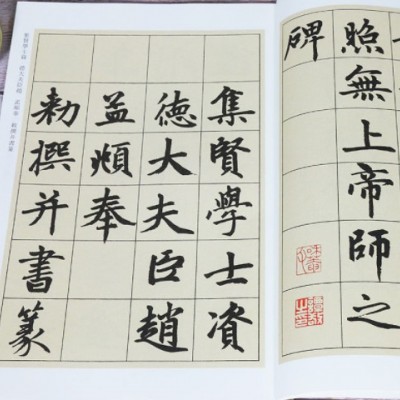 照無上帝師之
碑
集賢學士資
德大夫臣趙
孟頫奉
勑撰并書篆